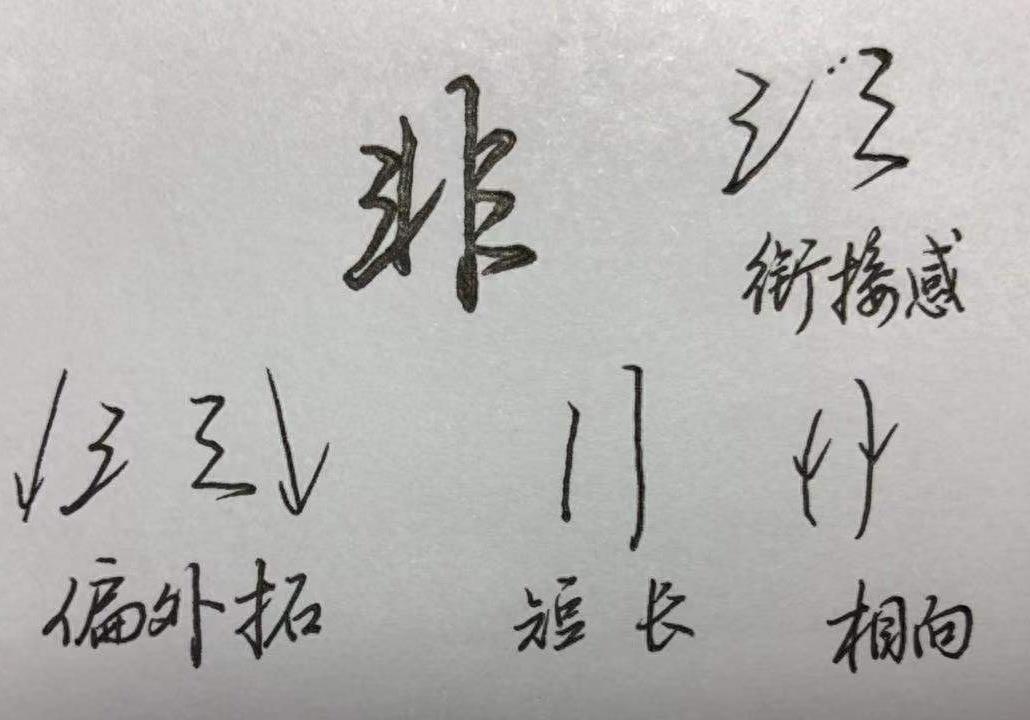 非
衔接感
偏外拓
短 长
相向